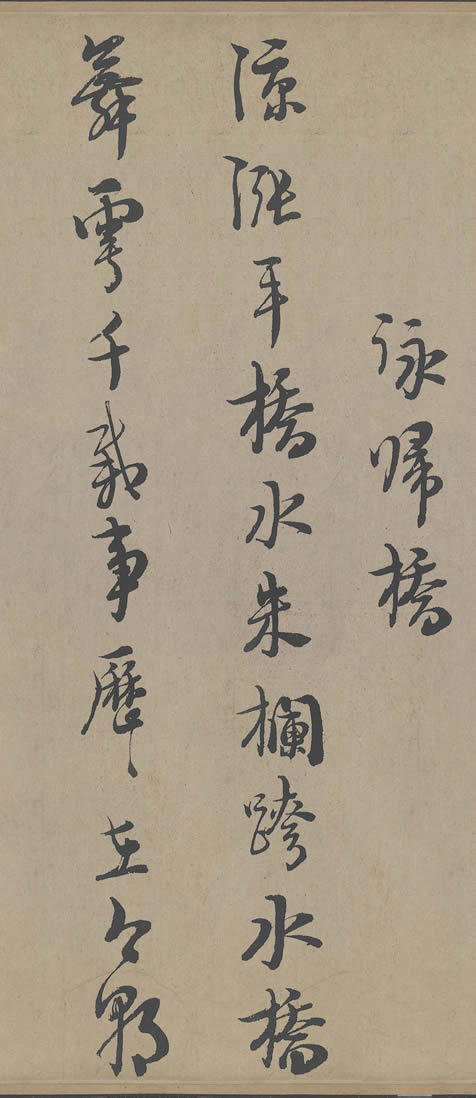 詠歸橋
涼漲平橋水朱欄跨水橋
舞雩千載事歷〻在今朝